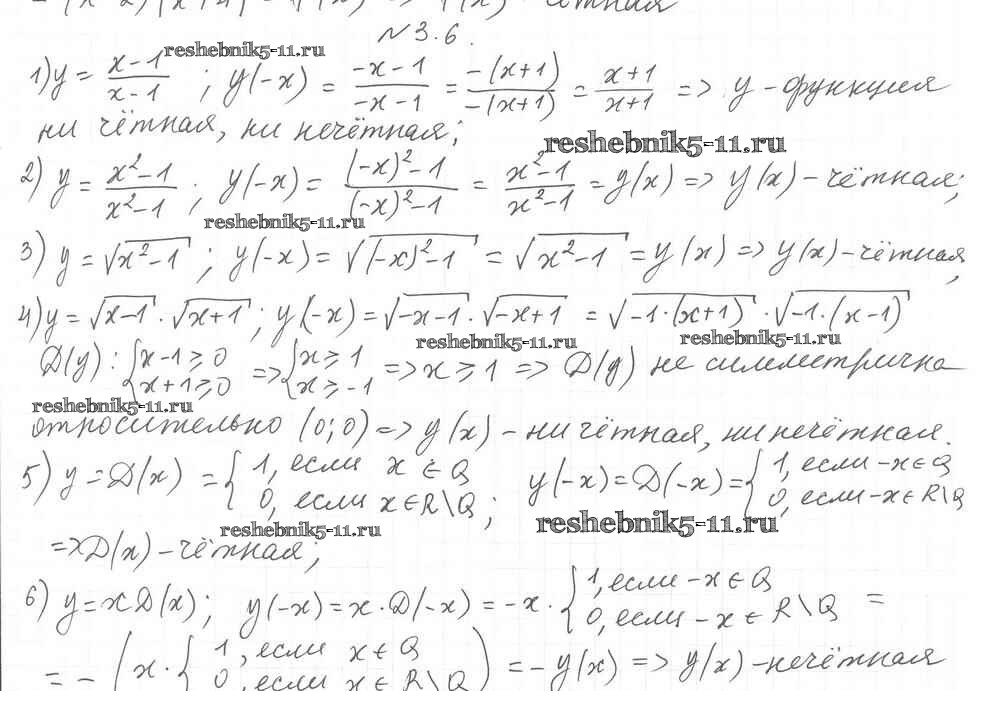 №3.6.
reshebnik5-11.ru
1) y = (x-1)/(x-1) ; y(-x) = (-x-1)/(-x-1) = (-(x+1))/(-(x+1)) = (x+1)/(x+1) => y - функция
ни чётная, ни нечётная;
reshebnik5-11.ru
2) y = (x²-1)/(x²-1) ; y(-x) = ((-x)²-1)/((-x)²-1) = (x²-1)/(x²-1) = y(x) => y(x) - чётная;
reshebnik5-11.ru
3) y = √(x²-1) ; y(-x) = √((-x)²-1) = √(x²-1) = y(x) => y(x) - чётная,
4) y = √(x-1) · √(x+1) ; y(-x) = √(-x-1) · √(-x+1) = √(-1·(x+1)) · √(-1·(x-1))
reshebnik5-11.ru reshebnik5-11.ru
D(y) : { x-1 ≥ 0 x+1 ≥ 0 => { x ≥ 1 x ≥ -1 => x ≥ 1 => D(y) не симметрична
reshebnik5-11.ru
относительно (0;0) => y(x) - ни чётная, ни нечётная.
5) y = D(x) = { 1, если x ∈ Q 0, если x ∈ R\Q ; y(-x) = D(-x) = { 1, если -x ∈ Q 0, если -x ∈ R\Q
reshebnik5-11.ru reshebnik5-11.ru
=> D(x) - чётная;
6) y = xD(x); y(-x) = x·D(-x) = -x · { 1, если -x ∈ Q 0, если -x ∈ R\Q =
= - ( x · { 1, если x ∈ Q 0, если x ∈ R\Q ) = - y(x) => y(x) - нечётная